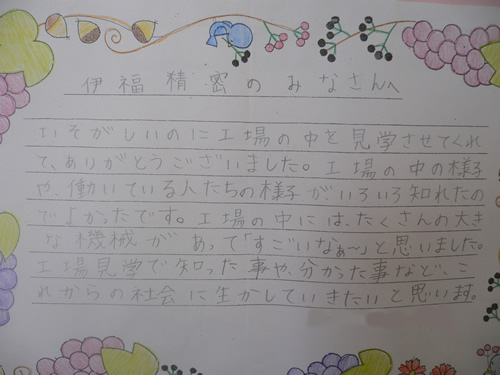 伊福精密のみなさんへ
いそがしいのに工場の中を見学させてくれ
て、ありがとうございました。工場の中の様子
や、働いている人たちの様子が、いろいろ知れたの
でよかったです。工場の中には、たくさんの大き
な機械が あって「すごいなぁ〜」と思いました。
工場見学で知った事や、分かった事など、こ
れからの社会に生かしていきたいと思います。